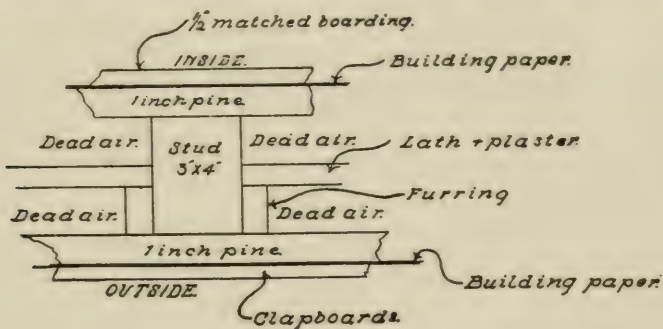 1/2" matched boarding.
INSIDE.
Building paper.
1 inch pine
Dead air.
Stud
3"x4"
Dead air.
Lath + plaster.
Furring
Dead air.
Dead air.
1 inch pine
Building paper.
OUTSIDE.
Clapboards.